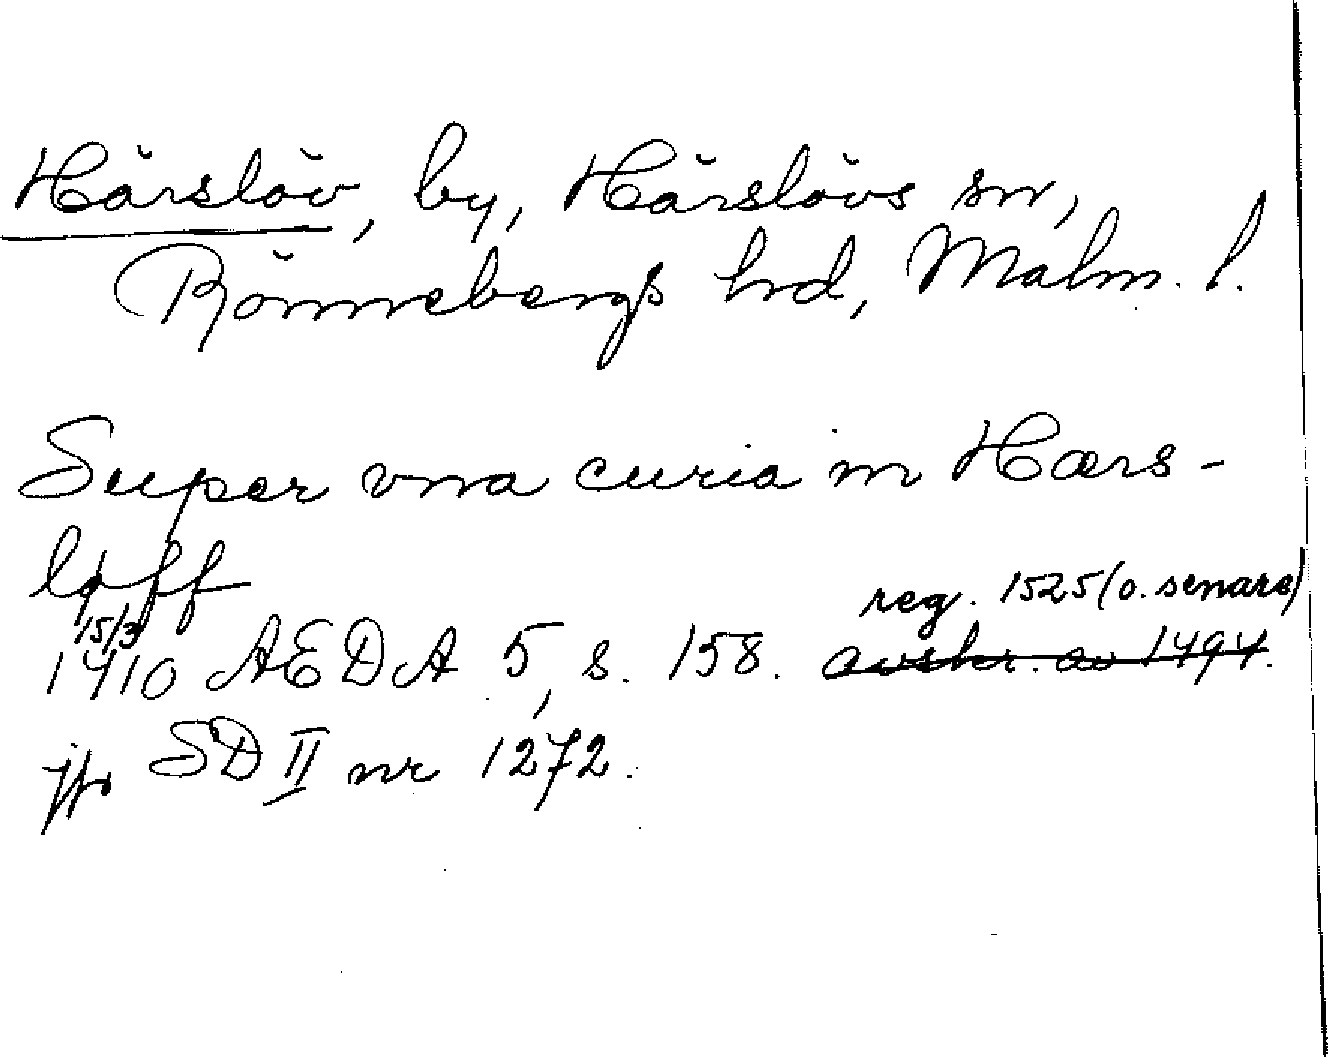 Härslöv, by, Härslövs sn,
Rönnebergs hrd, Malm. l.
Super vna curia in Hærs-
løff
15/3
reg. 1525 (o. senare)
1410 AEDA 5, s. 158. avskr. av 1494.
jfr SD II nr 1272.